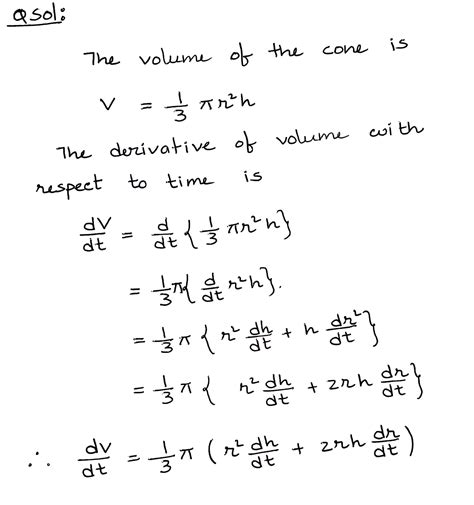 Qsol:
The volume of the cone is
V = 1/3 πr²h
The derivative of volume with
respect to time is
dV/dt = d/dt {1/3 πr²h}
= 1/3 π{ d/dt r²h}.
= 1/3 π { r² dh/dt + h dr²/dt }
= 1/3 π { r² dh/dt + 2rh dr/dt }
∴ dv/dt = 1/3 π ( r² dh/dt + 2rh dr/dt )